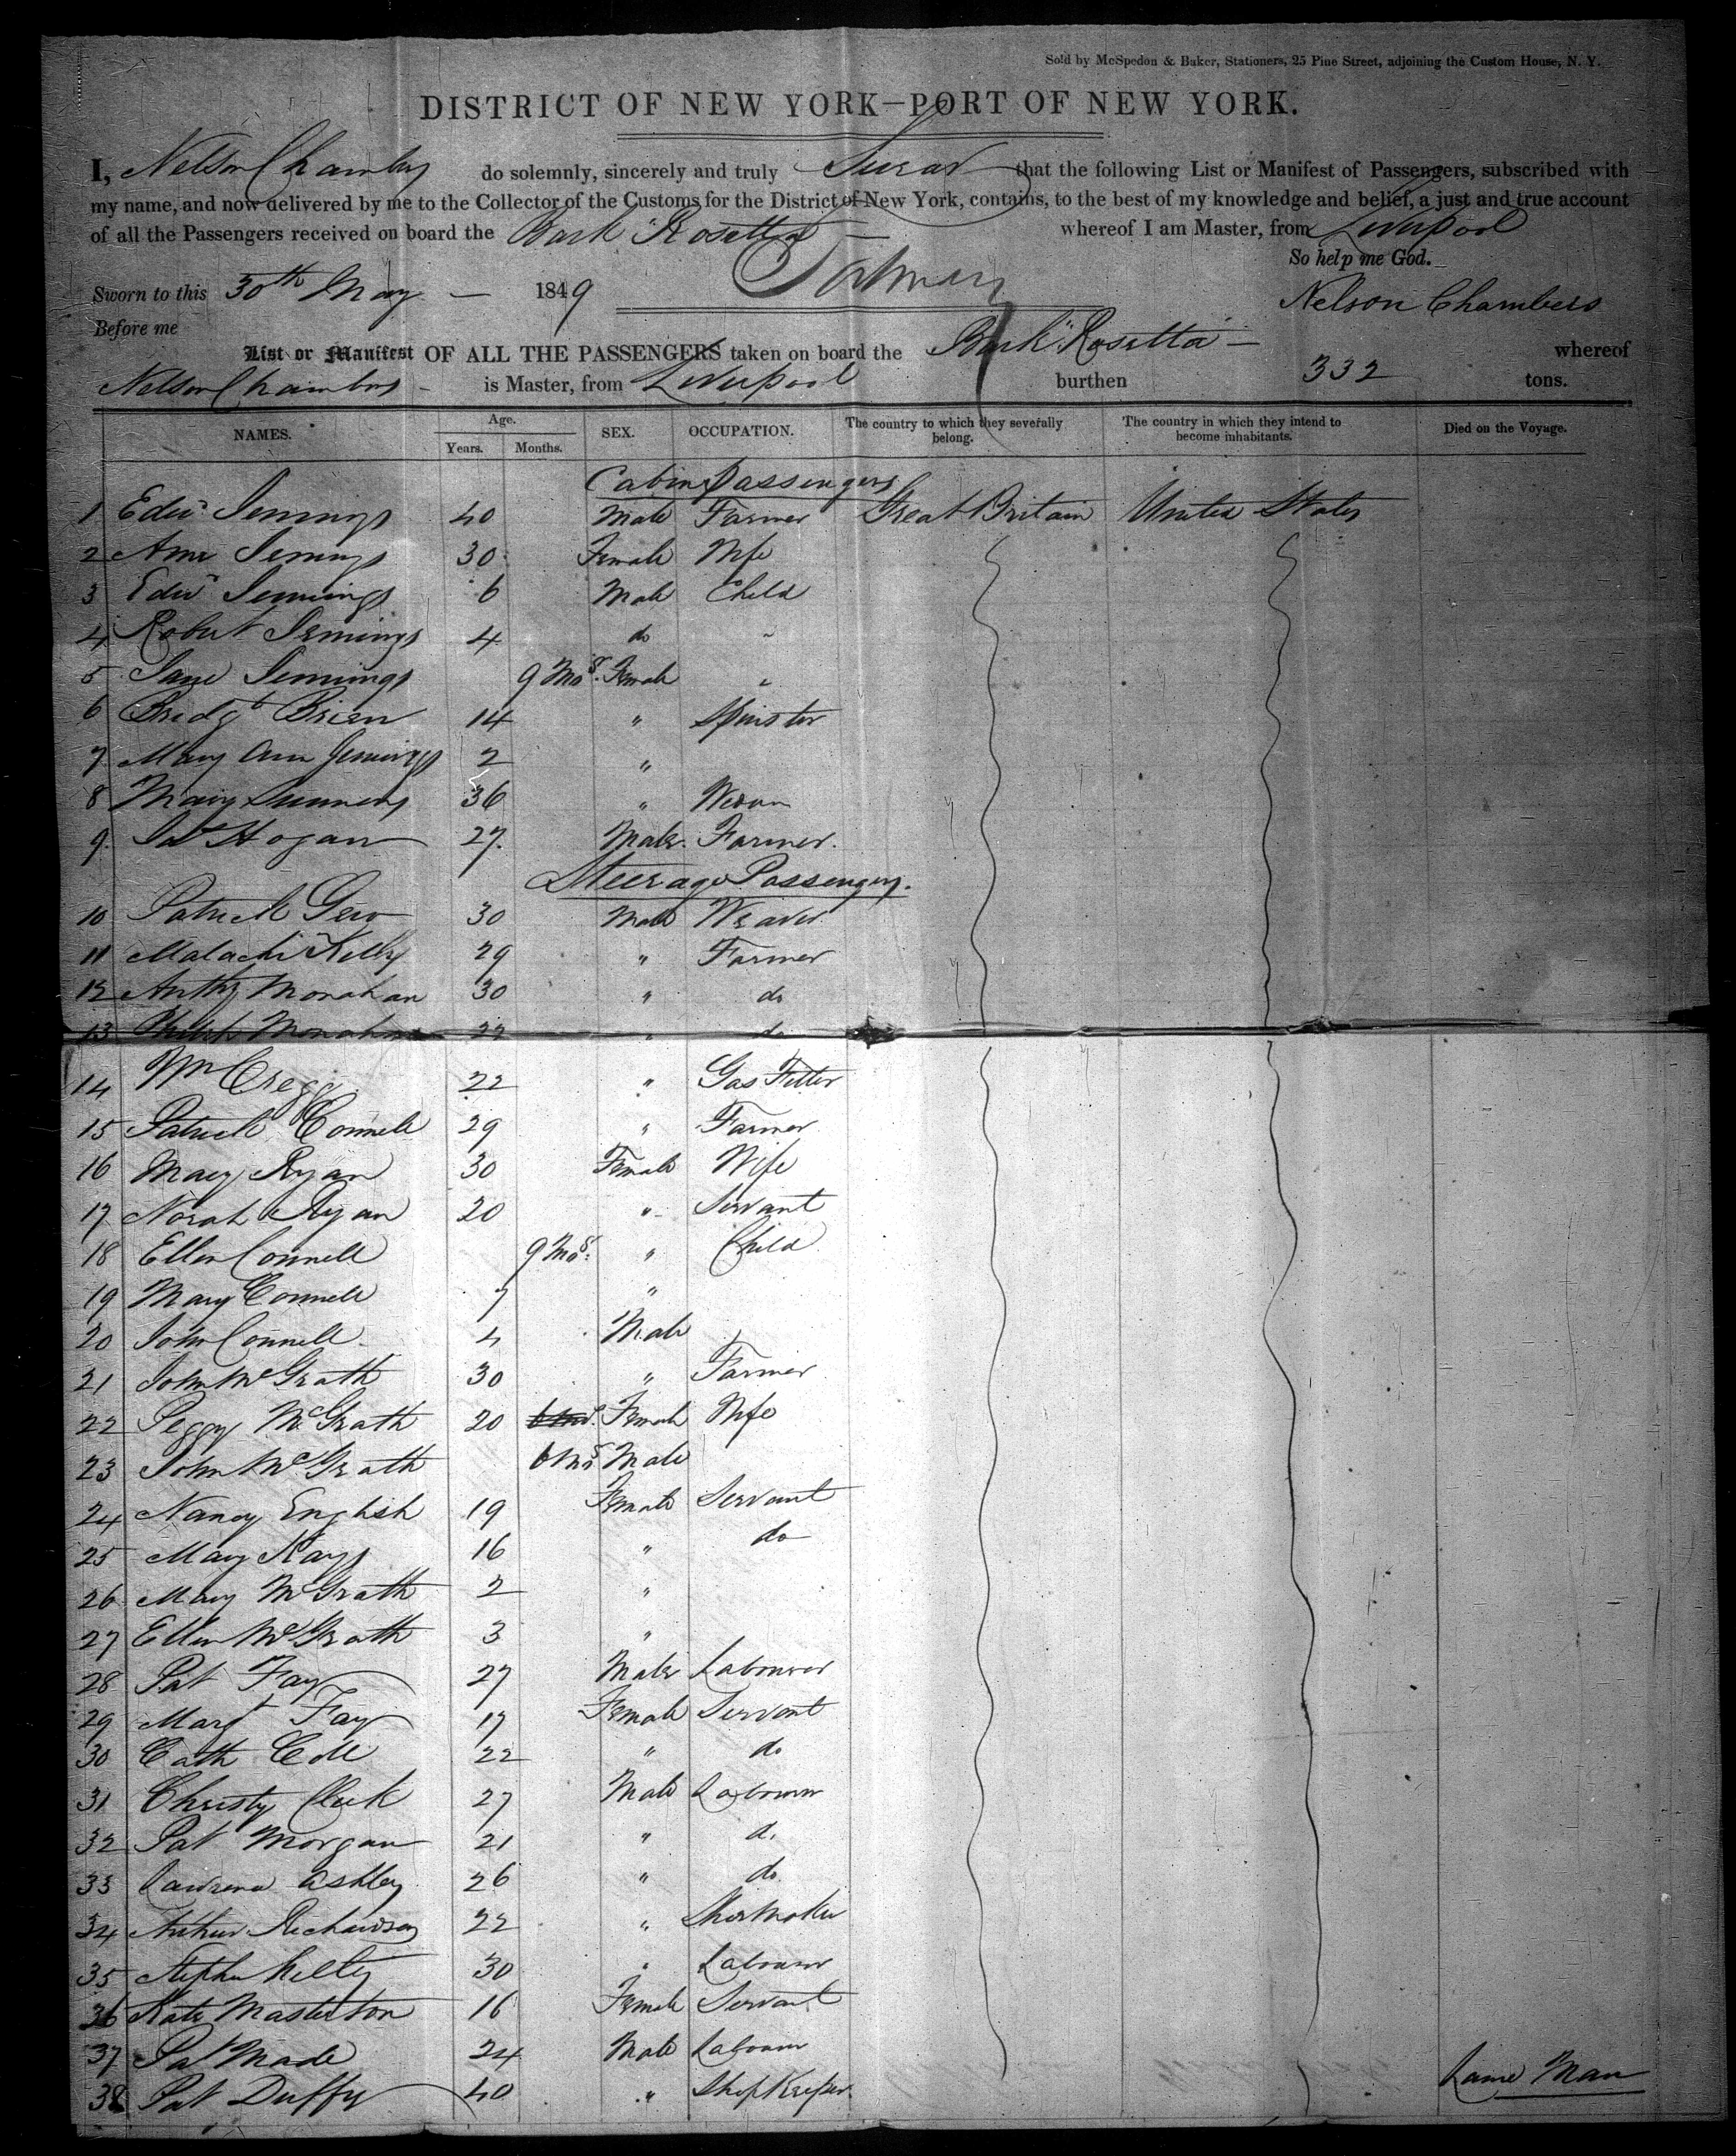 Sold by McSpedon & Baker, Stationers, 25 Pine Street, adjoining the Custom House, N. Y.
DISTRICT OF NEW YORK—PORT OF NEW YORK.
I, Nelson Chambers do solemnly, sincerely and truly Swear that the following List or Manifest of Passengers, subscribed with
my name, and now delivered by me to the Collector of the Customs for the District of New York, contains, to the best of my knowledge and belief, a just and true account
of all the Passengers received on board the Bark "Rosetta" — whereof I am Master, from Liverpool
So help me God.
Sworn to this 30th May — 1849 Nelson Chambers
Before me
List or Manifest OF ALL THE PASSENGERS taken on board the Bark "Rosetta" — whereof
Nelson Chambers — is Master, from Liverpool burthen 332 tons.
NAMES. Age. Years. Months. SEX. OCCUPATION. The country to which they severally belong. The country in which they intend to become inhabitants. Died on the Voyage.
Cabin Passengers
1 Edwd Jennings 40 Male Farmer Great Britain United States
2 Ann Jennings 30 Female Wife
3 Edwd Jennings 6 Male Child
4 Robert Jennings 4 do "
5 Jane Jennings 9 Mos. Female "
6 Bridgt Brien 14 " Spinster
7 Mary Ann Jennings 2 "
8 Mary 36 " Widow
9 Jas Hogan 27 Male Farmer
Steerage Passengers.
10 Patrick 30 Male Weaver
11 Malachi Kelly 29 " Farmer
12 Anthy Monahan 30 " do
13 Philip Monahan 22 " do
14 Wm Cregg 22 " Gas Fitter
15 Patrick Connell 29 " Farmer
16 Mary Ryan 30 Female Wife
17 Norah Ryan 20 " Servant
18 Ellen Connell 9 Mos. " Child
19 Mary Connell 7 "
20 John Connell 4 Male
21 John McGrath 30 " Farmer
22 Peggy McGrath 20 6 Mos. Female Wife
23 John McGrath 6 Mos Male
24 Nancy English 19 Female Servant
25 Mary Kays 16 " do
26 Mary McGrath 2 "
27 Ellen McGrath 3 "
28 Pat Fay 27 Male Labourer
29 Margt Fay 17 Female Servant
30 Cath Coll 22 " do
31 Christy Cleek 27 Male Labourer
32 Pat Morgan 21 " do
33 Lawrence Ashley 26 " do
34 Arthur Richardson 22 " Shoemaker
35 Stephen Kelly 30 " Labourer
36 Kate Masterton 16 Female Servant
37 Pat Made 24 Male Labourer Lame Man
38 Pat Duffy 40 " ShopKeeper